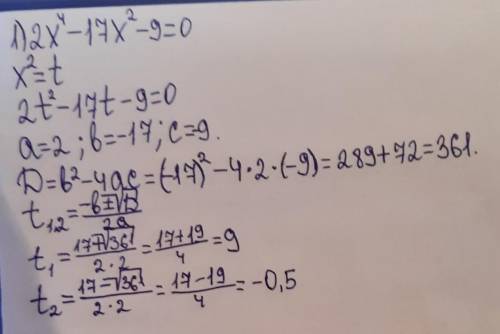 1) 2x⁴-17x²-9=0
x²=t
2t²-17t-9=0
a=2; b=-17; c=9.
D=b²-4ac=(-17)²-4·2·(-9)=289+72=361.
t₁₂=(-b±√D)/2a
t₁=(17+√361)/(2·2)=(17+19)/4=9
t₂=(17-√361)/(2·2)=(17-19)/4=-0,5